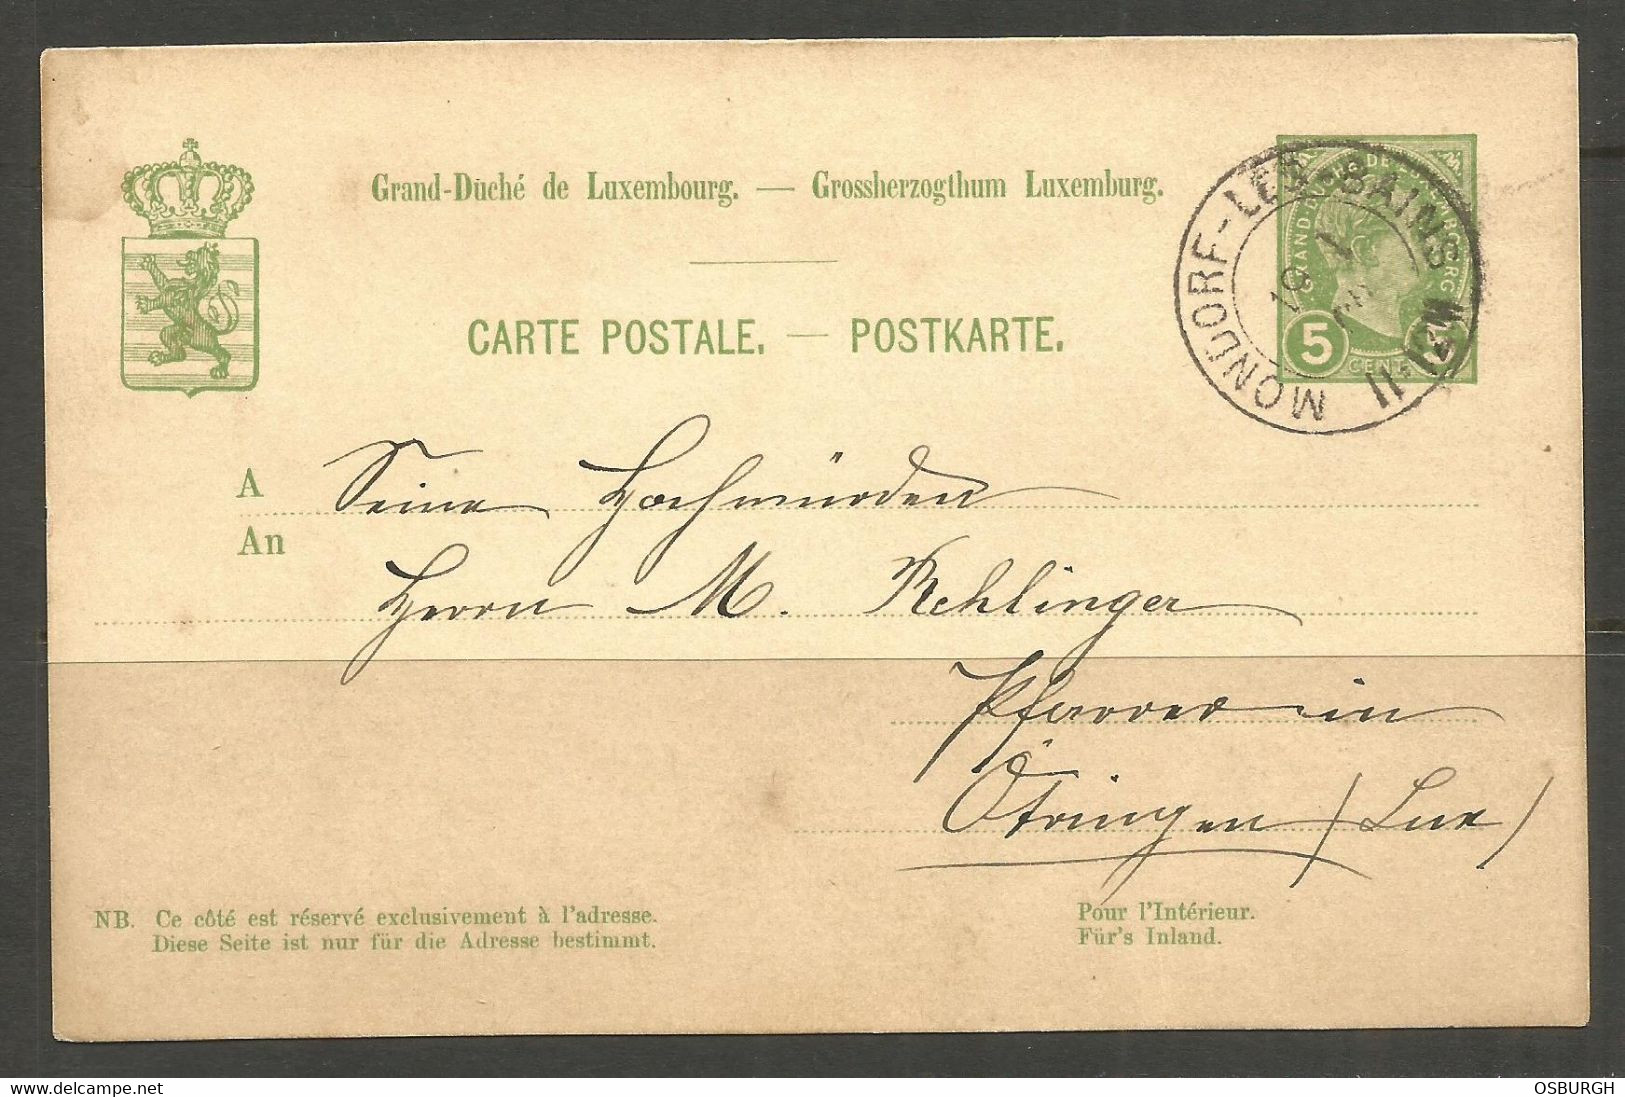 Grand-Duché de Luxembourg. — Grossherzogthum Luxemburg.
CARTE POSTALE. — POSTKARTE.
MONDORF-LES-BAINS
19 1
11-12M
GRAND-DUCHÉ DE LUXEMBOURG
5 CENT
A
An
Seine Hochwürden
Herrn M. Rehlinger
Pfarrer in
Ötringen / Lux /
NB. Ce côté est réservé exclusivement à l'adresse.
Diese Seite ist nur für die Adresse bestimmt.
Pour l'Intérieur.
Für's Inland.
delcampe.net
OSBURGH